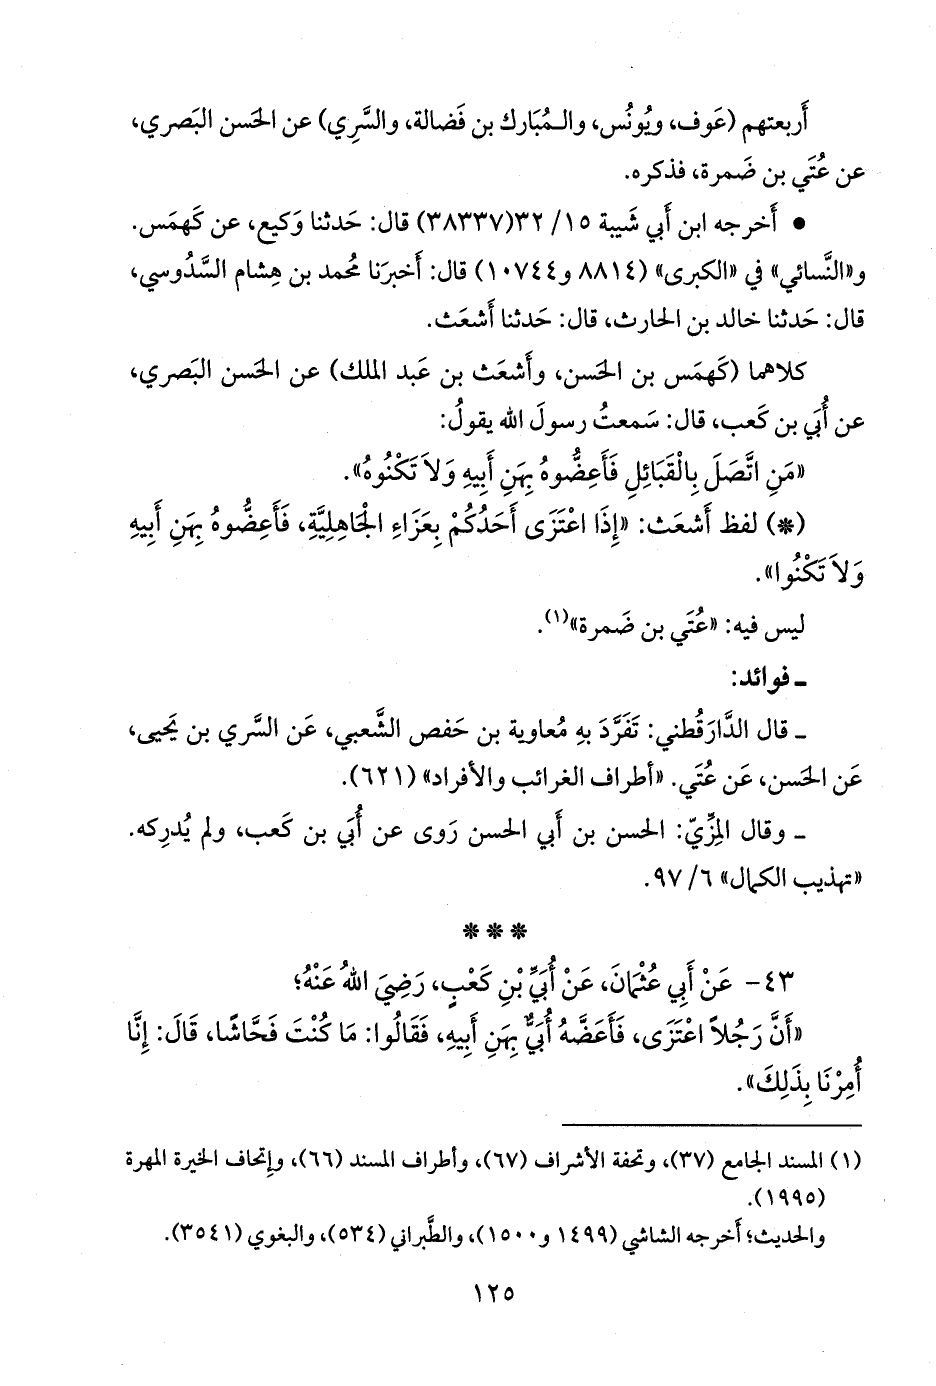 أَربعتهم (عَوف، ويُونُس، والـمُبَارك بن فَضالة، والسَّرِي) عن الحَسن البَصري،
عن عُتَي بن ضَمرة، فذكره.
• أَخرجه ابن أَبي شَيبة ١٥/ ٣٢(٣٨٣٣٧) قال: حَدثنا وَكيع، عن كَهمَس.
و«النَّسائي» في «الكبرى» (٨٨١٤ و١٠٧٤٤) قال: أَخبرَنا مُحمد بن هِشام السَّدُوسي،
قال: حَدثنا خالد بن الحارث، قال: حَدثنا أَشعَث.
كلاهما (كَهمَس بن الحَسن، وأَشعَث بن عَبد الملك) عن الحَسن البَصري،
عن أُبَي بن كَعب، قال: سَمعتُ رسولَ الله يقولُ:
«مَنِ اتَّصَلَ بِالْقَبَائِلِ فَأَعِضُّوهُ بِهَنِ أَبِيهِ وَلاَ تَكْنُوهُ».
(*) لفظ أَشعَث: «إِذَا اعْتَزَى أَحَدُكُمْ بِعَزَاءِ الْجَاهِلِيَّةِ، فَأَعِضُّوهُ بِهَنِ أَبِيهِ
وَلاَ تَكْنُوا».
ليس فيه: «عُتَي بن ضَمرة»(١).
ـ فوائد:
ـ قال الدَّارَقُطني: تَفَرَّدَ بِهِ مُعاوية بن حَفص الشَّعبي، عَن السَّري بن يَحيى،
عَن الحَسن، عَن عُتَي. «أطراف الغرائب والأفراد» (٦٢١).
ـ وقال المِزِّيّ: الحسن بن أَبي الحسن رَوى عن أُبَي بن كَعب، ولم يُدرِكه.
«تهذيب الكمال» ٦/ ٩٧.
* * *
٤٣- عَنْ أَبِي عُثْمَانَ، عَنْ أُبَيِّ بْنِ كَعْبٍ، رَضِيَ اللهُ عَنْهُ؛
«أَنَّ رَجُلاً اعْتَزَى، فَأَعَضَّهُ أُبَيٌّ بِهَنِ أَبِيهِ، فَقَالُوا: مَا كُنْتَ فَحَّاشًا، قَالَ: إِنَّا
أُمِرْنَا بِذَلِكَ».
(١) المسند الجامع (٣٧)، وتحفة الأشراف (٦٧)، وأطراف المسند (٦٦)، وإتحاف الخيرة المهرة
(١٩٩٥).
والحديث؛ أخرجه الشاشي (١٤٩٩ و١٥٠٠)، والطَّبراني (٥٣٤)، والبغوي (٣٥٤١).
١٢٥